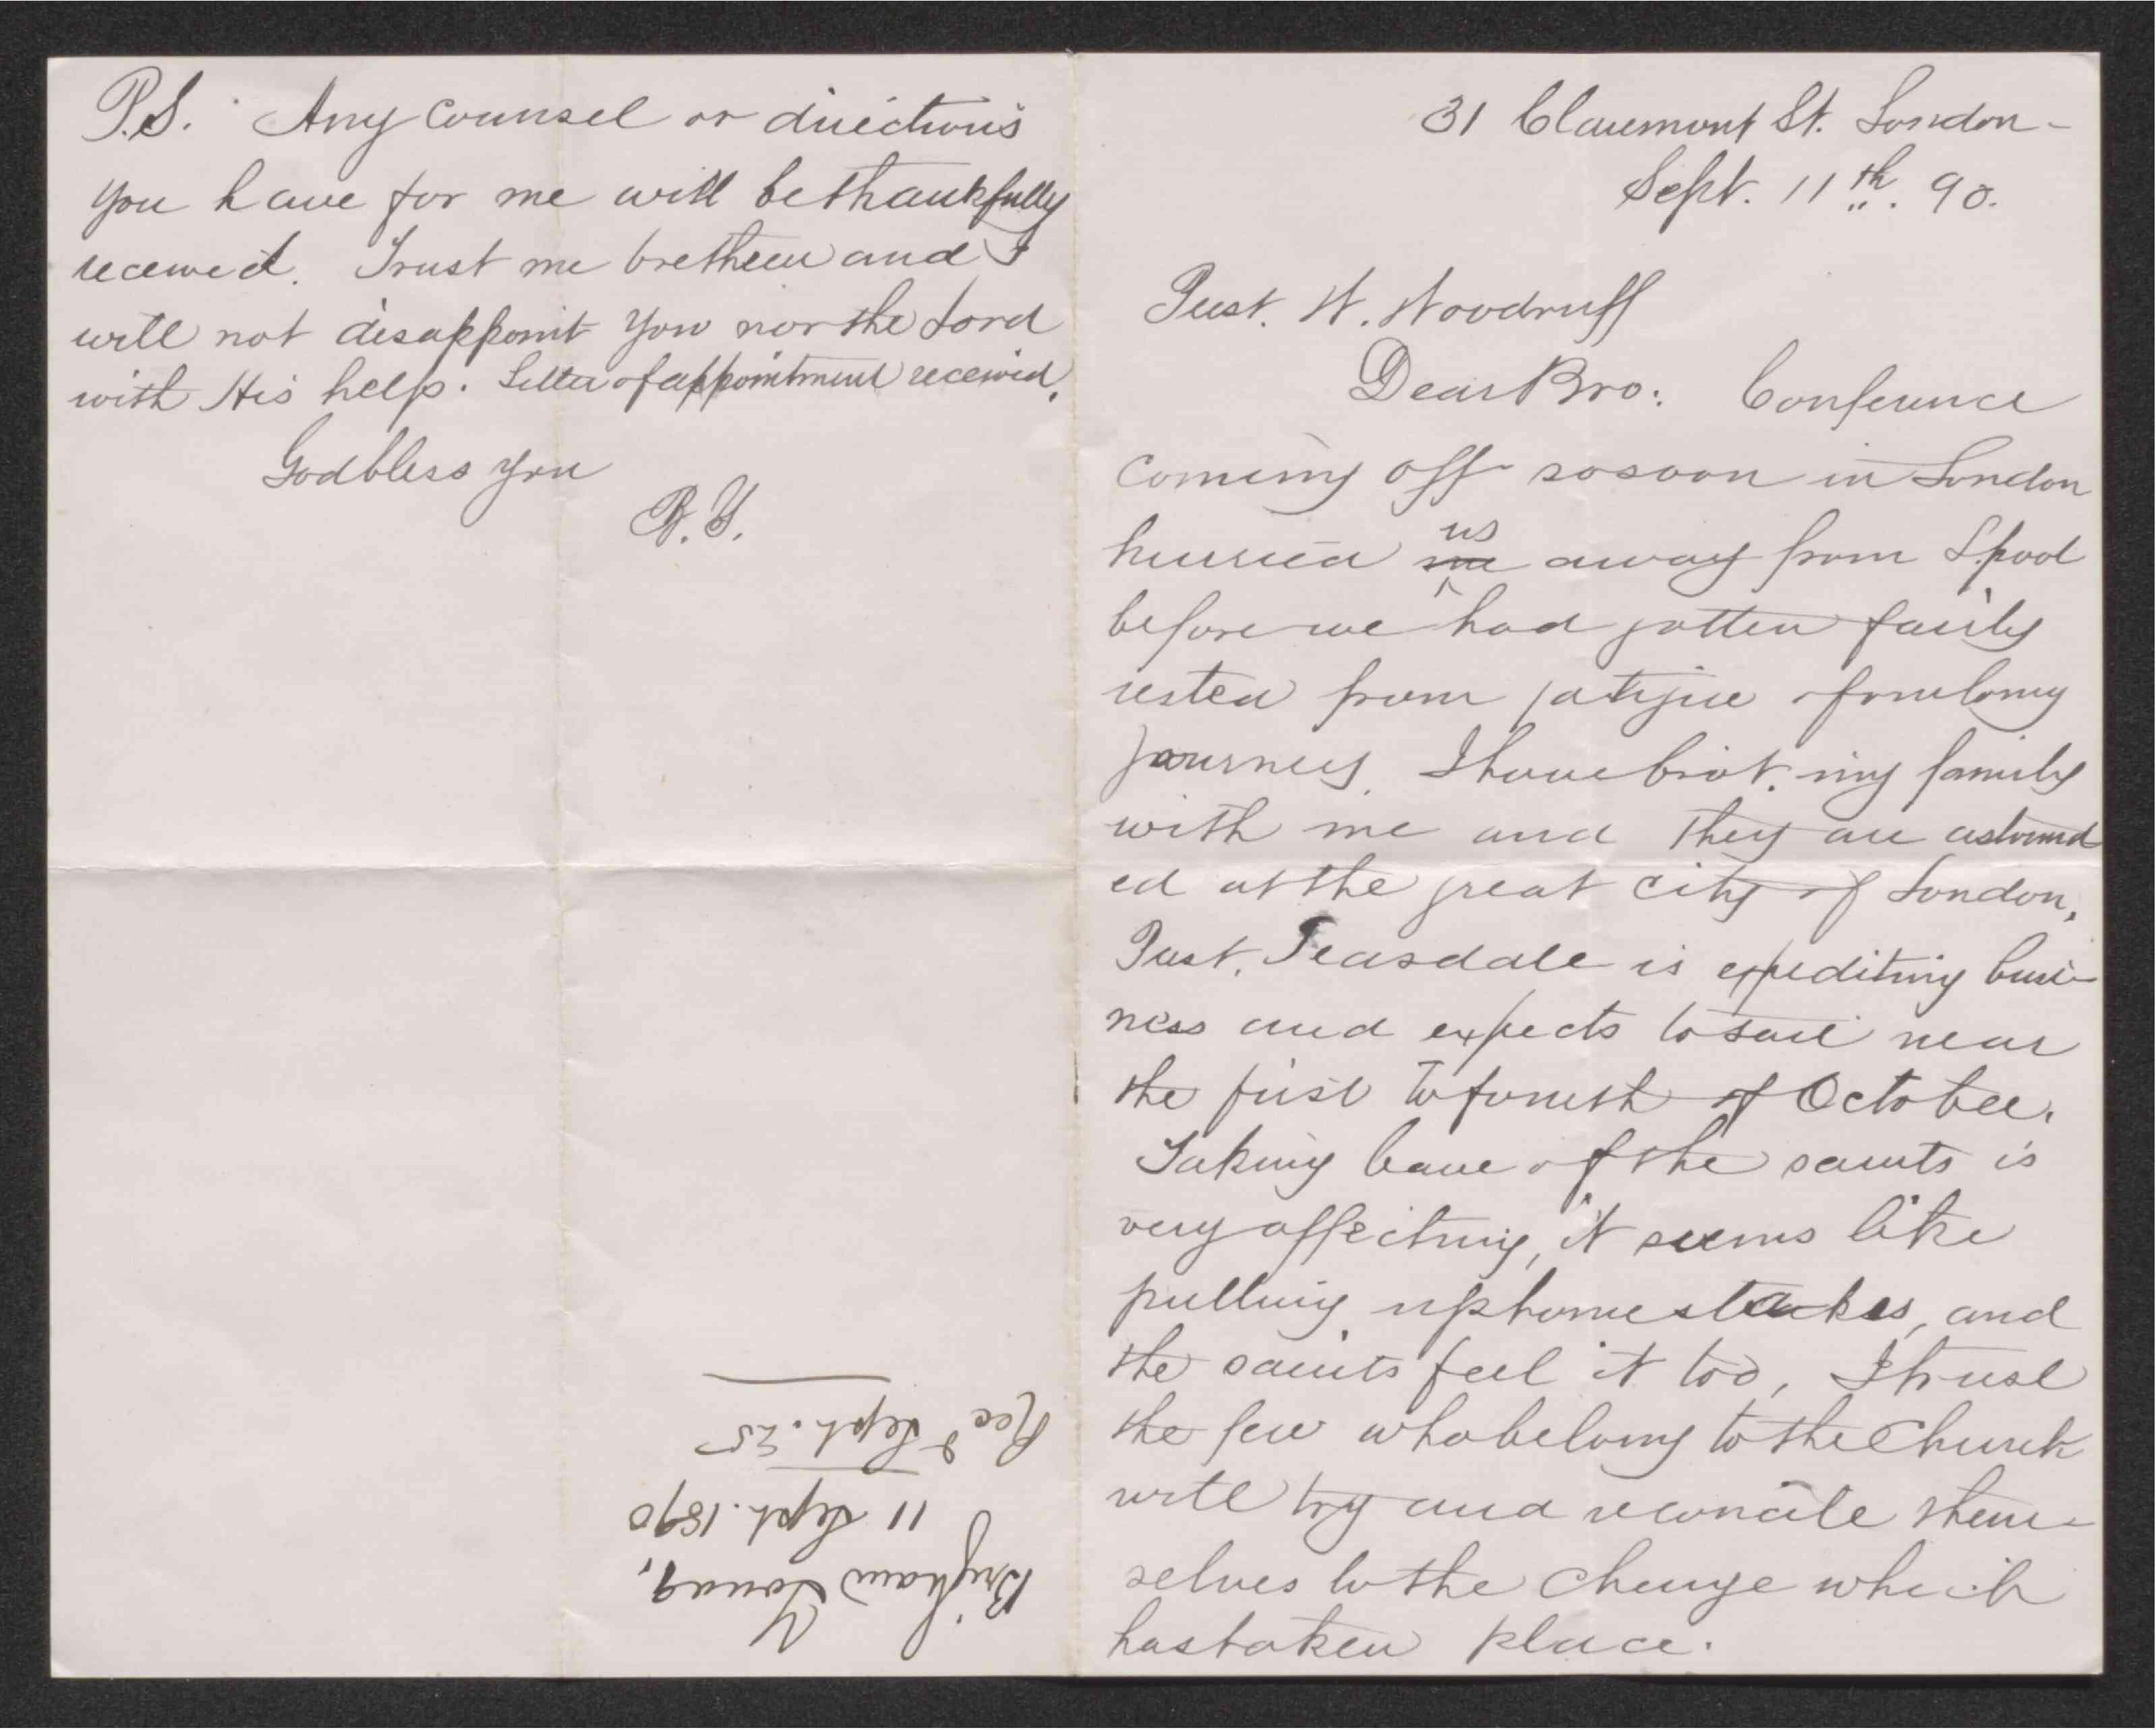 31 Claremont St. London-
Sept. 11th. 90.
Prest. W. Woodruff
Dear Bro: Conference
coming off so soon in London
hurried me us away from L.pool
before we had gotten fairly
rested from fatigue of our long
journey. I have brot. my family
with me and they are astound
ed at the great city of London.
Prest. Teasdale is expediting busi-
ness and expects to sail near
the first to fourth of October.
Taking leave of the saints is
very affecting, it seems like
pulling up home stakes, and
the saints feel it too, I trust
the few who belong to the Church
will try and reconcile them-
selves to the change which
has taken place.
P.S. Any counsel or directions
you have for me will be thankfully
received. Trust me brethren and I
will not disappoint you nor the Lord
with His help. Letter of appointment received.
God bless you
B.Y.
Brigham Young,
11 Sept. 1890
Recd Sept. 25